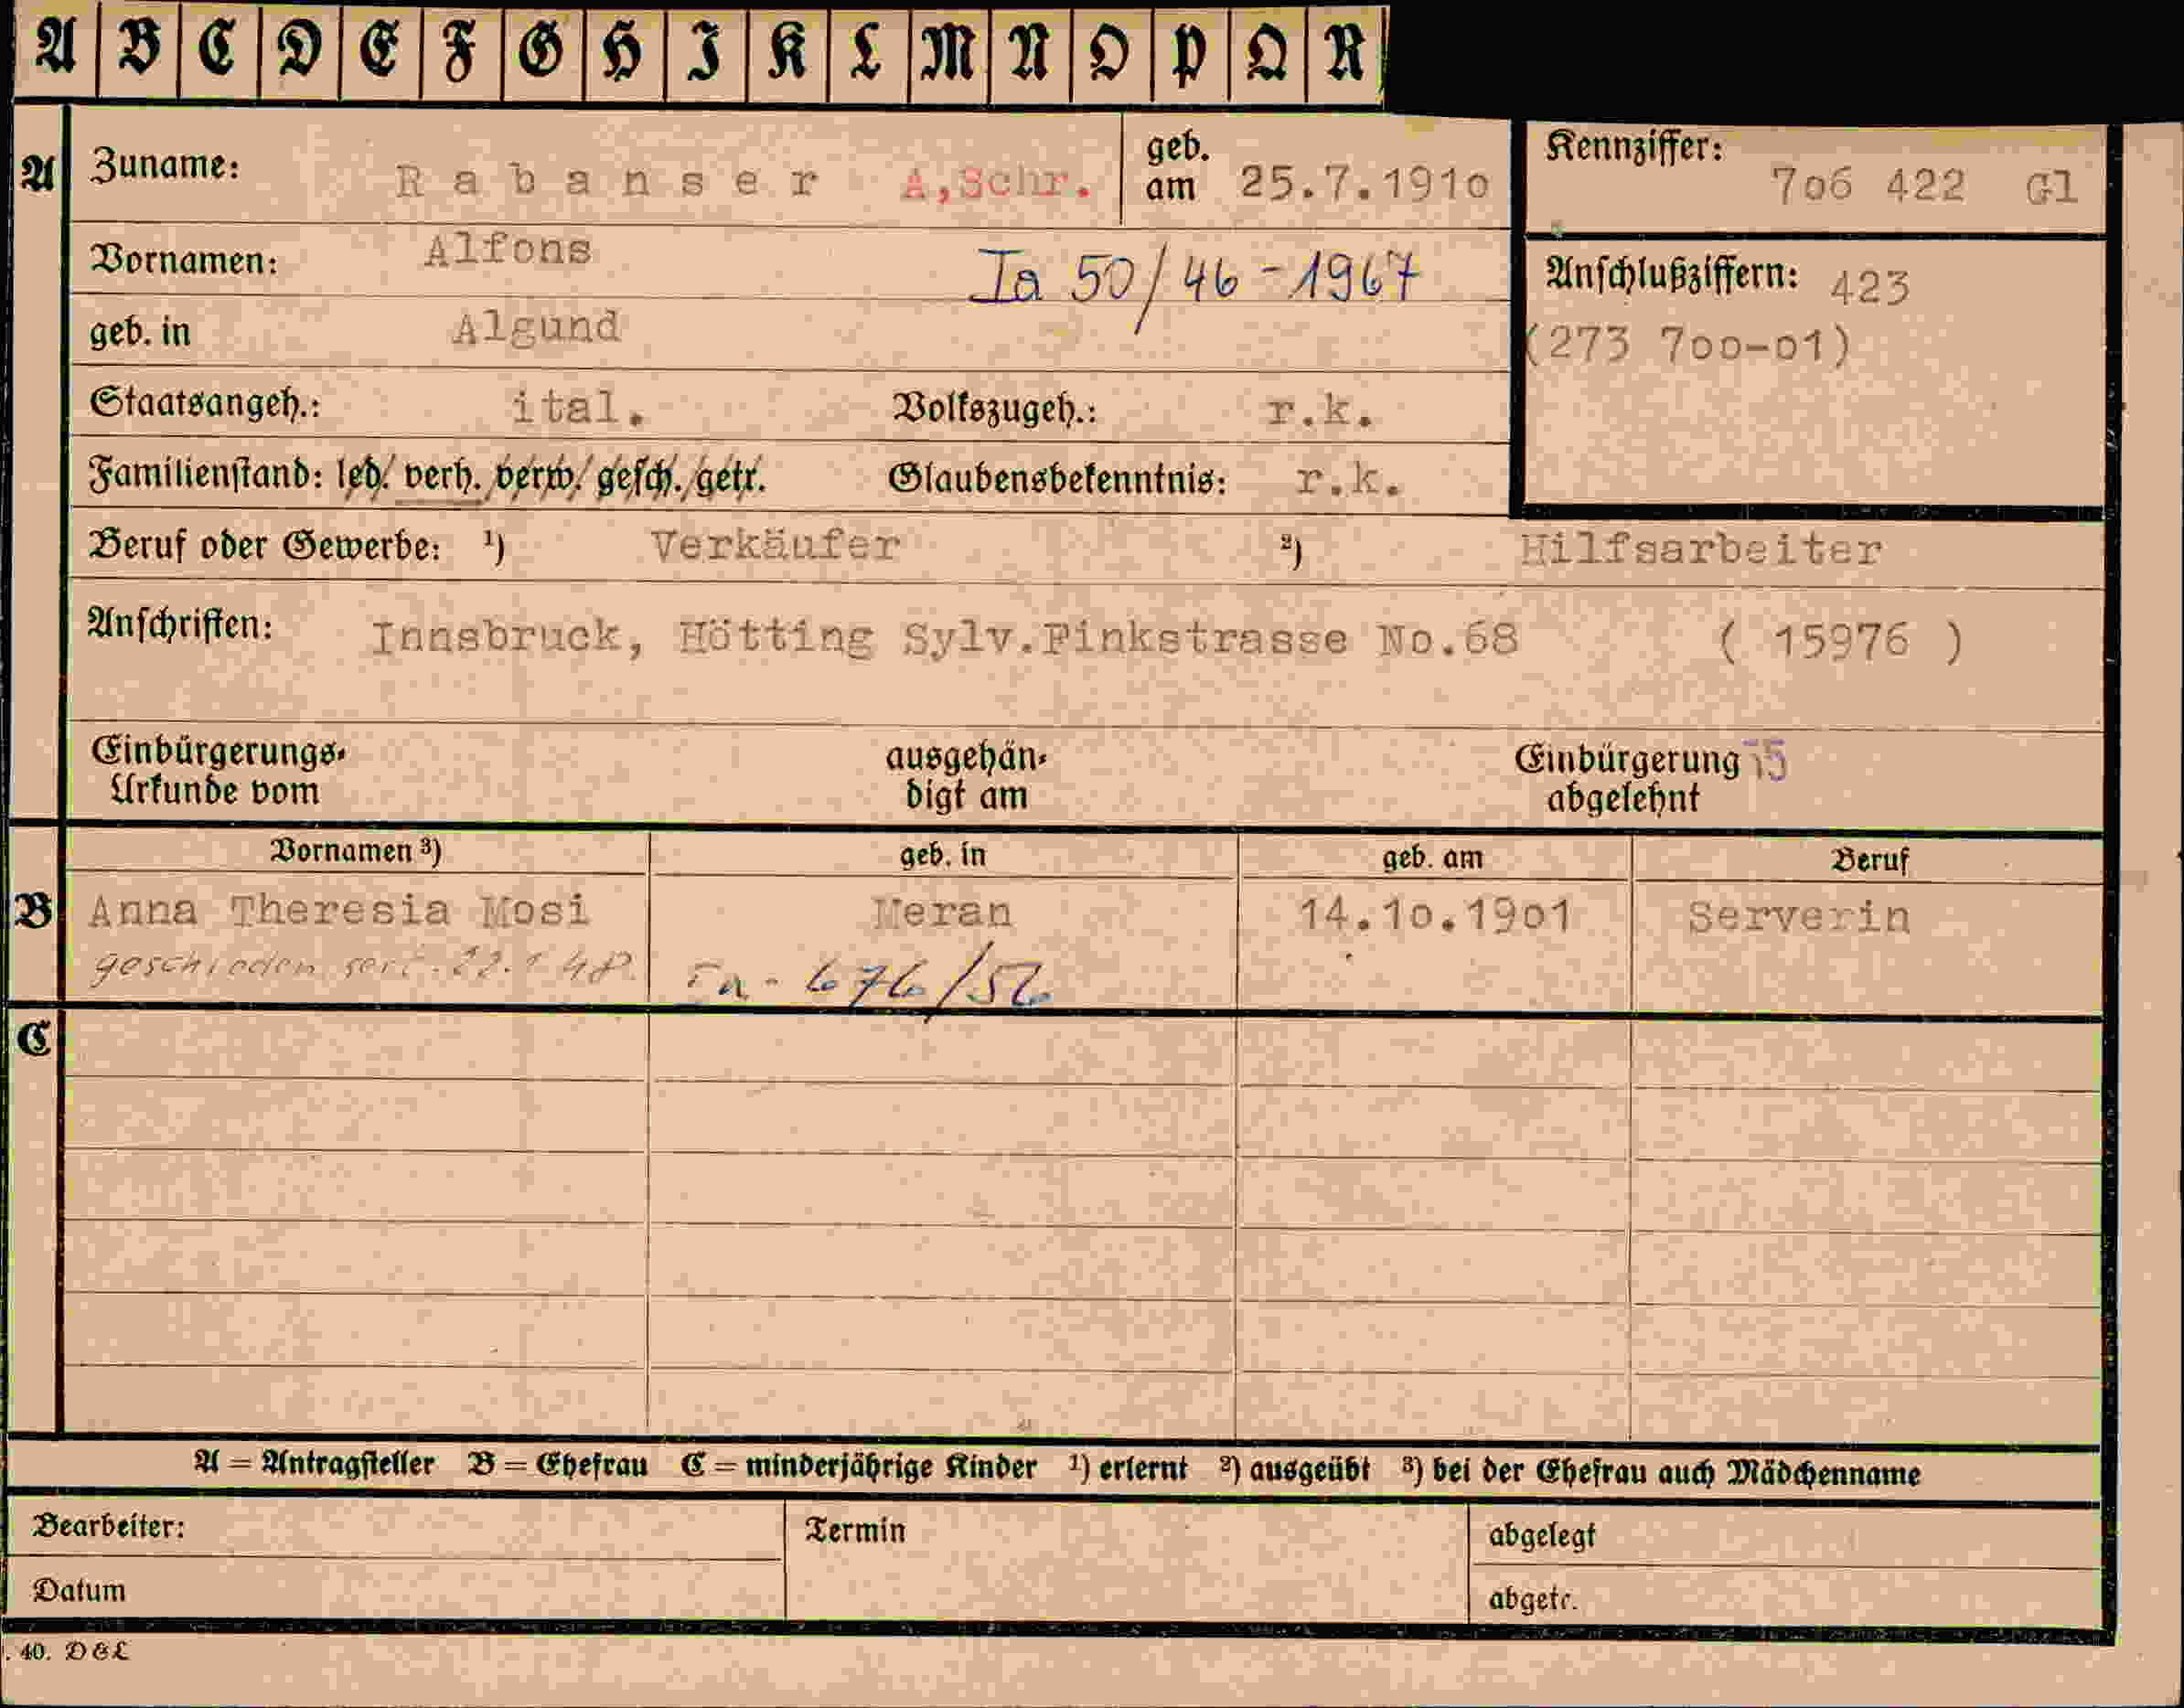 A B C D E F G H I K L M N O P Q R
A Zuname: Rabanser A,Schr. geb. am 25.7.1910 Kennziffer: 706 422 Gl
Vornamen: Alfons Ia 50/46-1967 Anschlußziffern: 423
geb. in Algund (273 700-01)
Staatsangeh.: ital. Volkszugeh.: r.k.
Familienstand: led. verh. verw. gesch. getr. Glaubensbekenntnis: r.k.
Beruf oder Gewerbe: ¹) Verkäufer ²) Hilfsarbeiter
Anschriften: Innsbruck, Hötting Sylv.Finkstrasse No.68 ( 15976 )
Einbürgerungs- Urkunde vom ausgehän- digt am Einbürgerung abgelehnt
Vornamen ³) geb. in geb. am Beruf
B Anna Theresia Mosi Meran 14.10.1901 Serverin
geschieden 676/56
C
A = Antragsteller B = Ehefrau C = minderjährige Kinder ¹) erlernt ²) ausgeübt ³) bei der Ehefrau auch Mädchenname
Bearbeiter: Termin abgelegt
Datum abgetr.
. 40. D&L